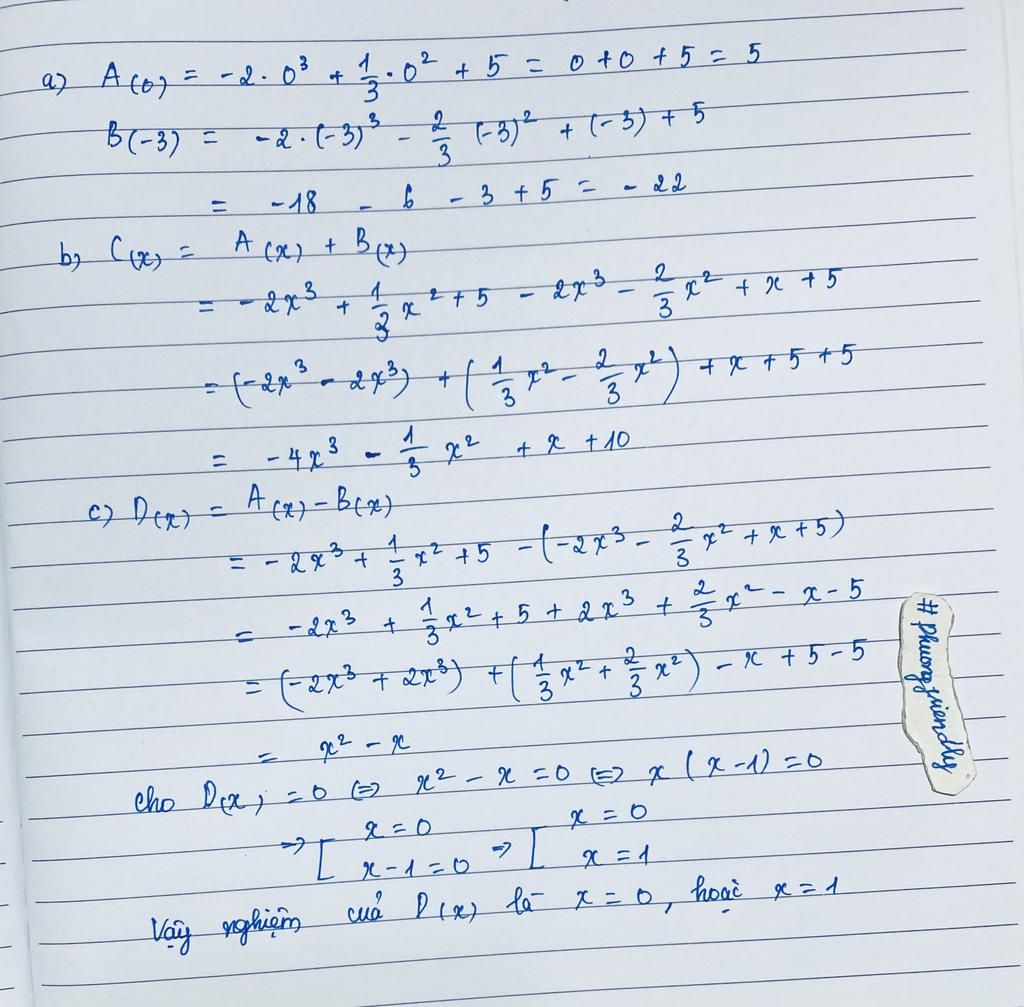 a) A(0) = -2 . 0³ + 1/3 . 0² + 5 = 0 + 0 + 5 = 5
B(-3) = -2 . (-3)³ - 2/3 (-3)² + (-3) + 5
= -18 - 6 - 3 + 5 = -22
b) C(x) = A(x) + B(x)
= -2x³ + 1/3 x² + 5 - 2x³ - 2/3 x² + x + 5
= (-2x³ - 2x³) + (1/3 x² - 2/3 x²) + x + 5 + 5
= -4x³ - 1/3 x² + x + 10
c) D(x) = A(x) - B(x)
= -2x³ + 1/3 x² + 5 - (-2x³ - 2/3 x² + x + 5)
= -2x³ + 1/3 x² + 5 + 2x³ + 2/3 x² - x - 5
= (-2x³ + 2x³) + (1/3 x² + 2/3 x²) - x + 5 - 5
= x² - x
cho D(x) = 0 ⇔ x² - x = 0 ⇔ x (x - 1) = 0
⇒ [ x = 0 ⇒ [ x = 0
x - 1 = 0 x = 1
Vậy nghiệm của D(x) là x = 0, hoặc x = 1
# phuongfriendly